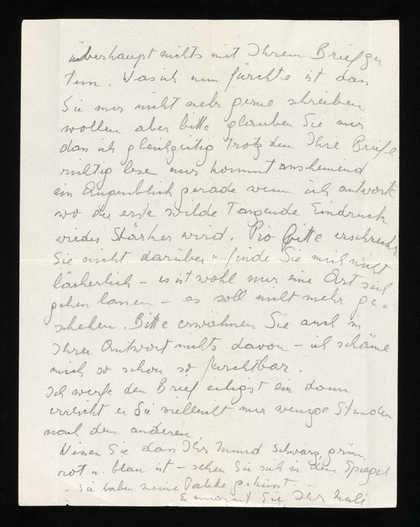 überhaupt nichts mit Ihrem Brief zu
tun. Was ich nun fürchte ist dass
Sie mir nicht mehr gerne schreiben
wollen aber bitte glauben Sie mir
dass ich gleichzeitig trotzdem Ihre Briefe
richtig lese nur kommt anscheinend
ein Augenblick gerade wenn ich antworte
wo der erste wilde Eindruck
wieder stärker wird. bitte erschrecken
Sie nicht darüber u. finde Sie mich nicht
lächerlich – es ist wohl nur eine Art sich
gehen lassen – es soll nicht mehr ge-
schehen. Bitte erwähnen Sie auch in
Ihrer Antwort nichts davon – ich schäme
mich so schon so furchtbar.
Ich werfe den Brief eiligst ein dann
erreicht er Sie vielleicht nur wenige Stunden
nach dem anderen.
Wissen Sie dass Ihr Mund schwarz, grün
rot u. blau ist – sehen Sie sich in den Spiegel
– Sie haben meine Palette geküsst –
Sie Ihr